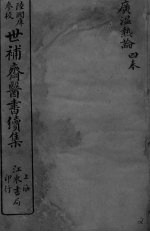 廣溫熱論 四本
陸潤庠
參校
世補齋醫書續集
上海
江東書局
印行